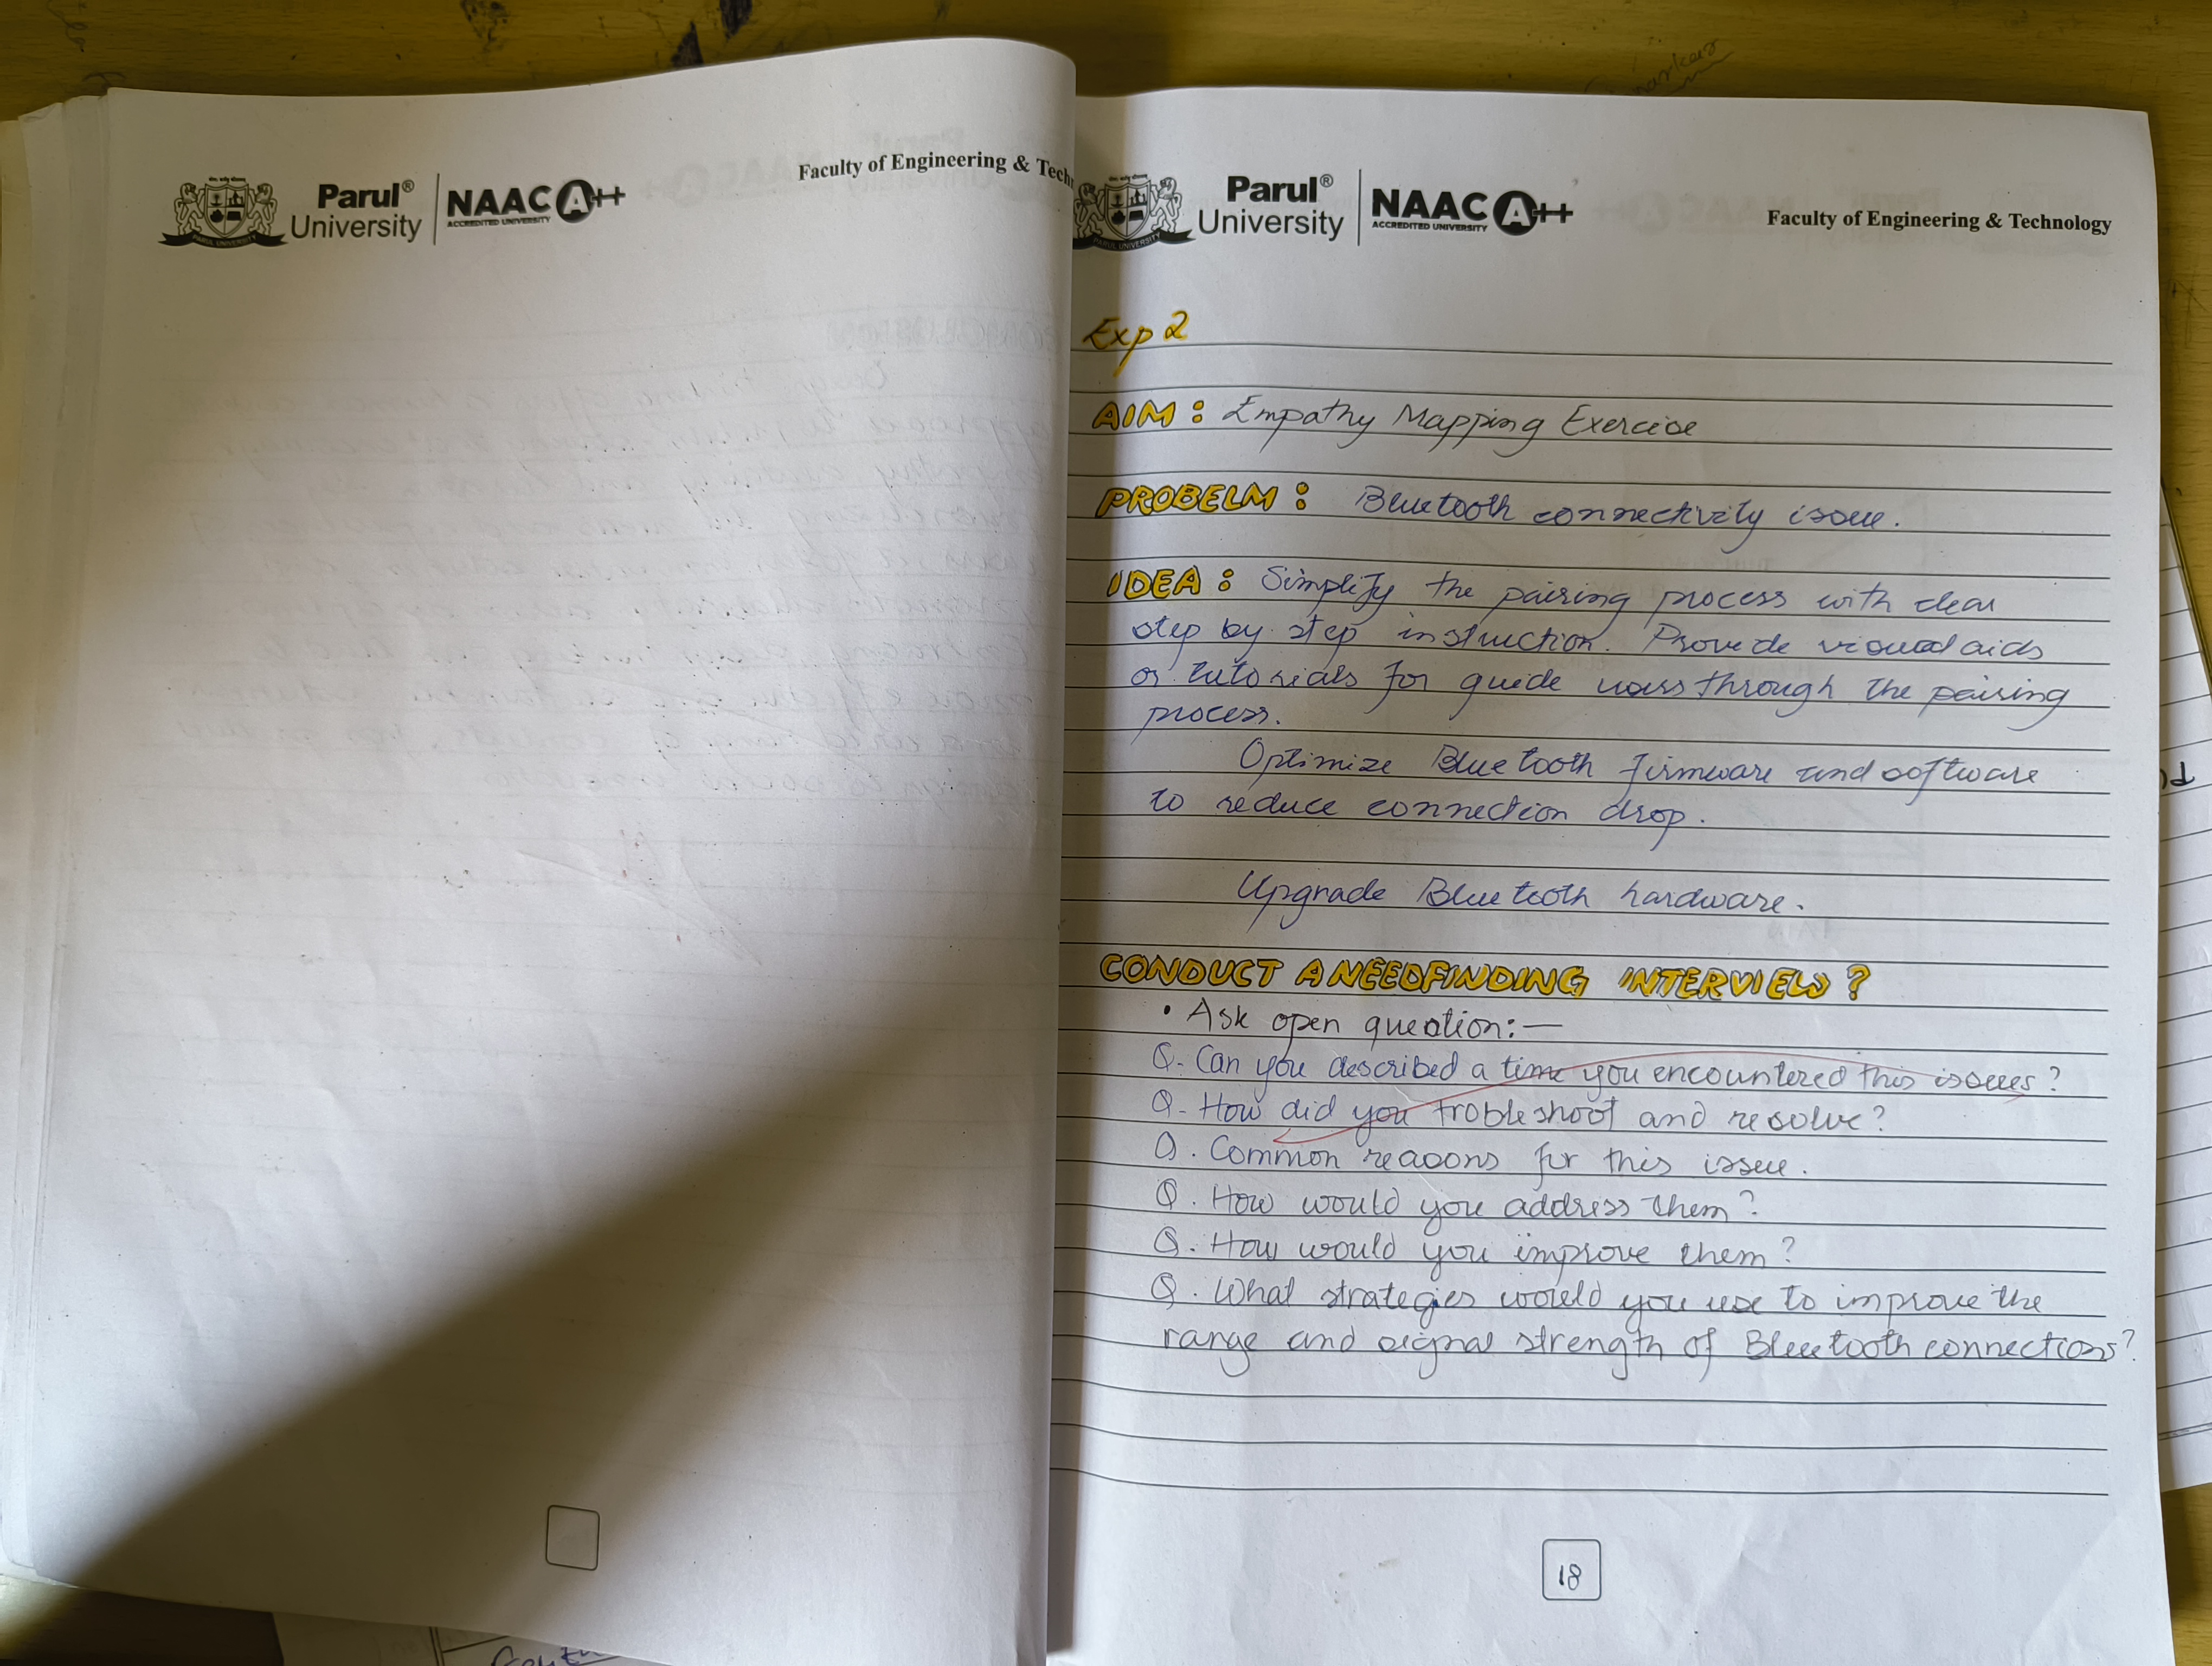 Parul®
University
NAAC A++
ACCREDITED UNIVERSITY
PARUL UNIVERSITY
Faculty of Engineering & Techn
Parul®
University
NAAC A++
ACCREDITED UNIVERSITY
PARUL UNIVERSITY
Faculty of Engineering & Technology
Exp 2
AIM : Empathy Mapping Exercise
PROBELM : Bluetooth connectivity issue.
IDEA : Simplify the pairing process with clear
step by step instruction. Provide visual aids
or tutorials for guide users through the pairing
process.
Optimize Bluetooth firmware and software
to reduce connection drop.
Upgrade Bluetooth hardware.
CONDUCT A NEEDFINDING INTERVIEW ?
• Ask open question:—
Q- Can you described a time you encountered this issues?
Q- How did you trobleshoot and resolve?
Q. Common reasons for this issue.
Q. How would you address them?
Q. How would you improve them?
Q. What strategies would you use to improve the
range and signal strength of Bluetooth connections?
18